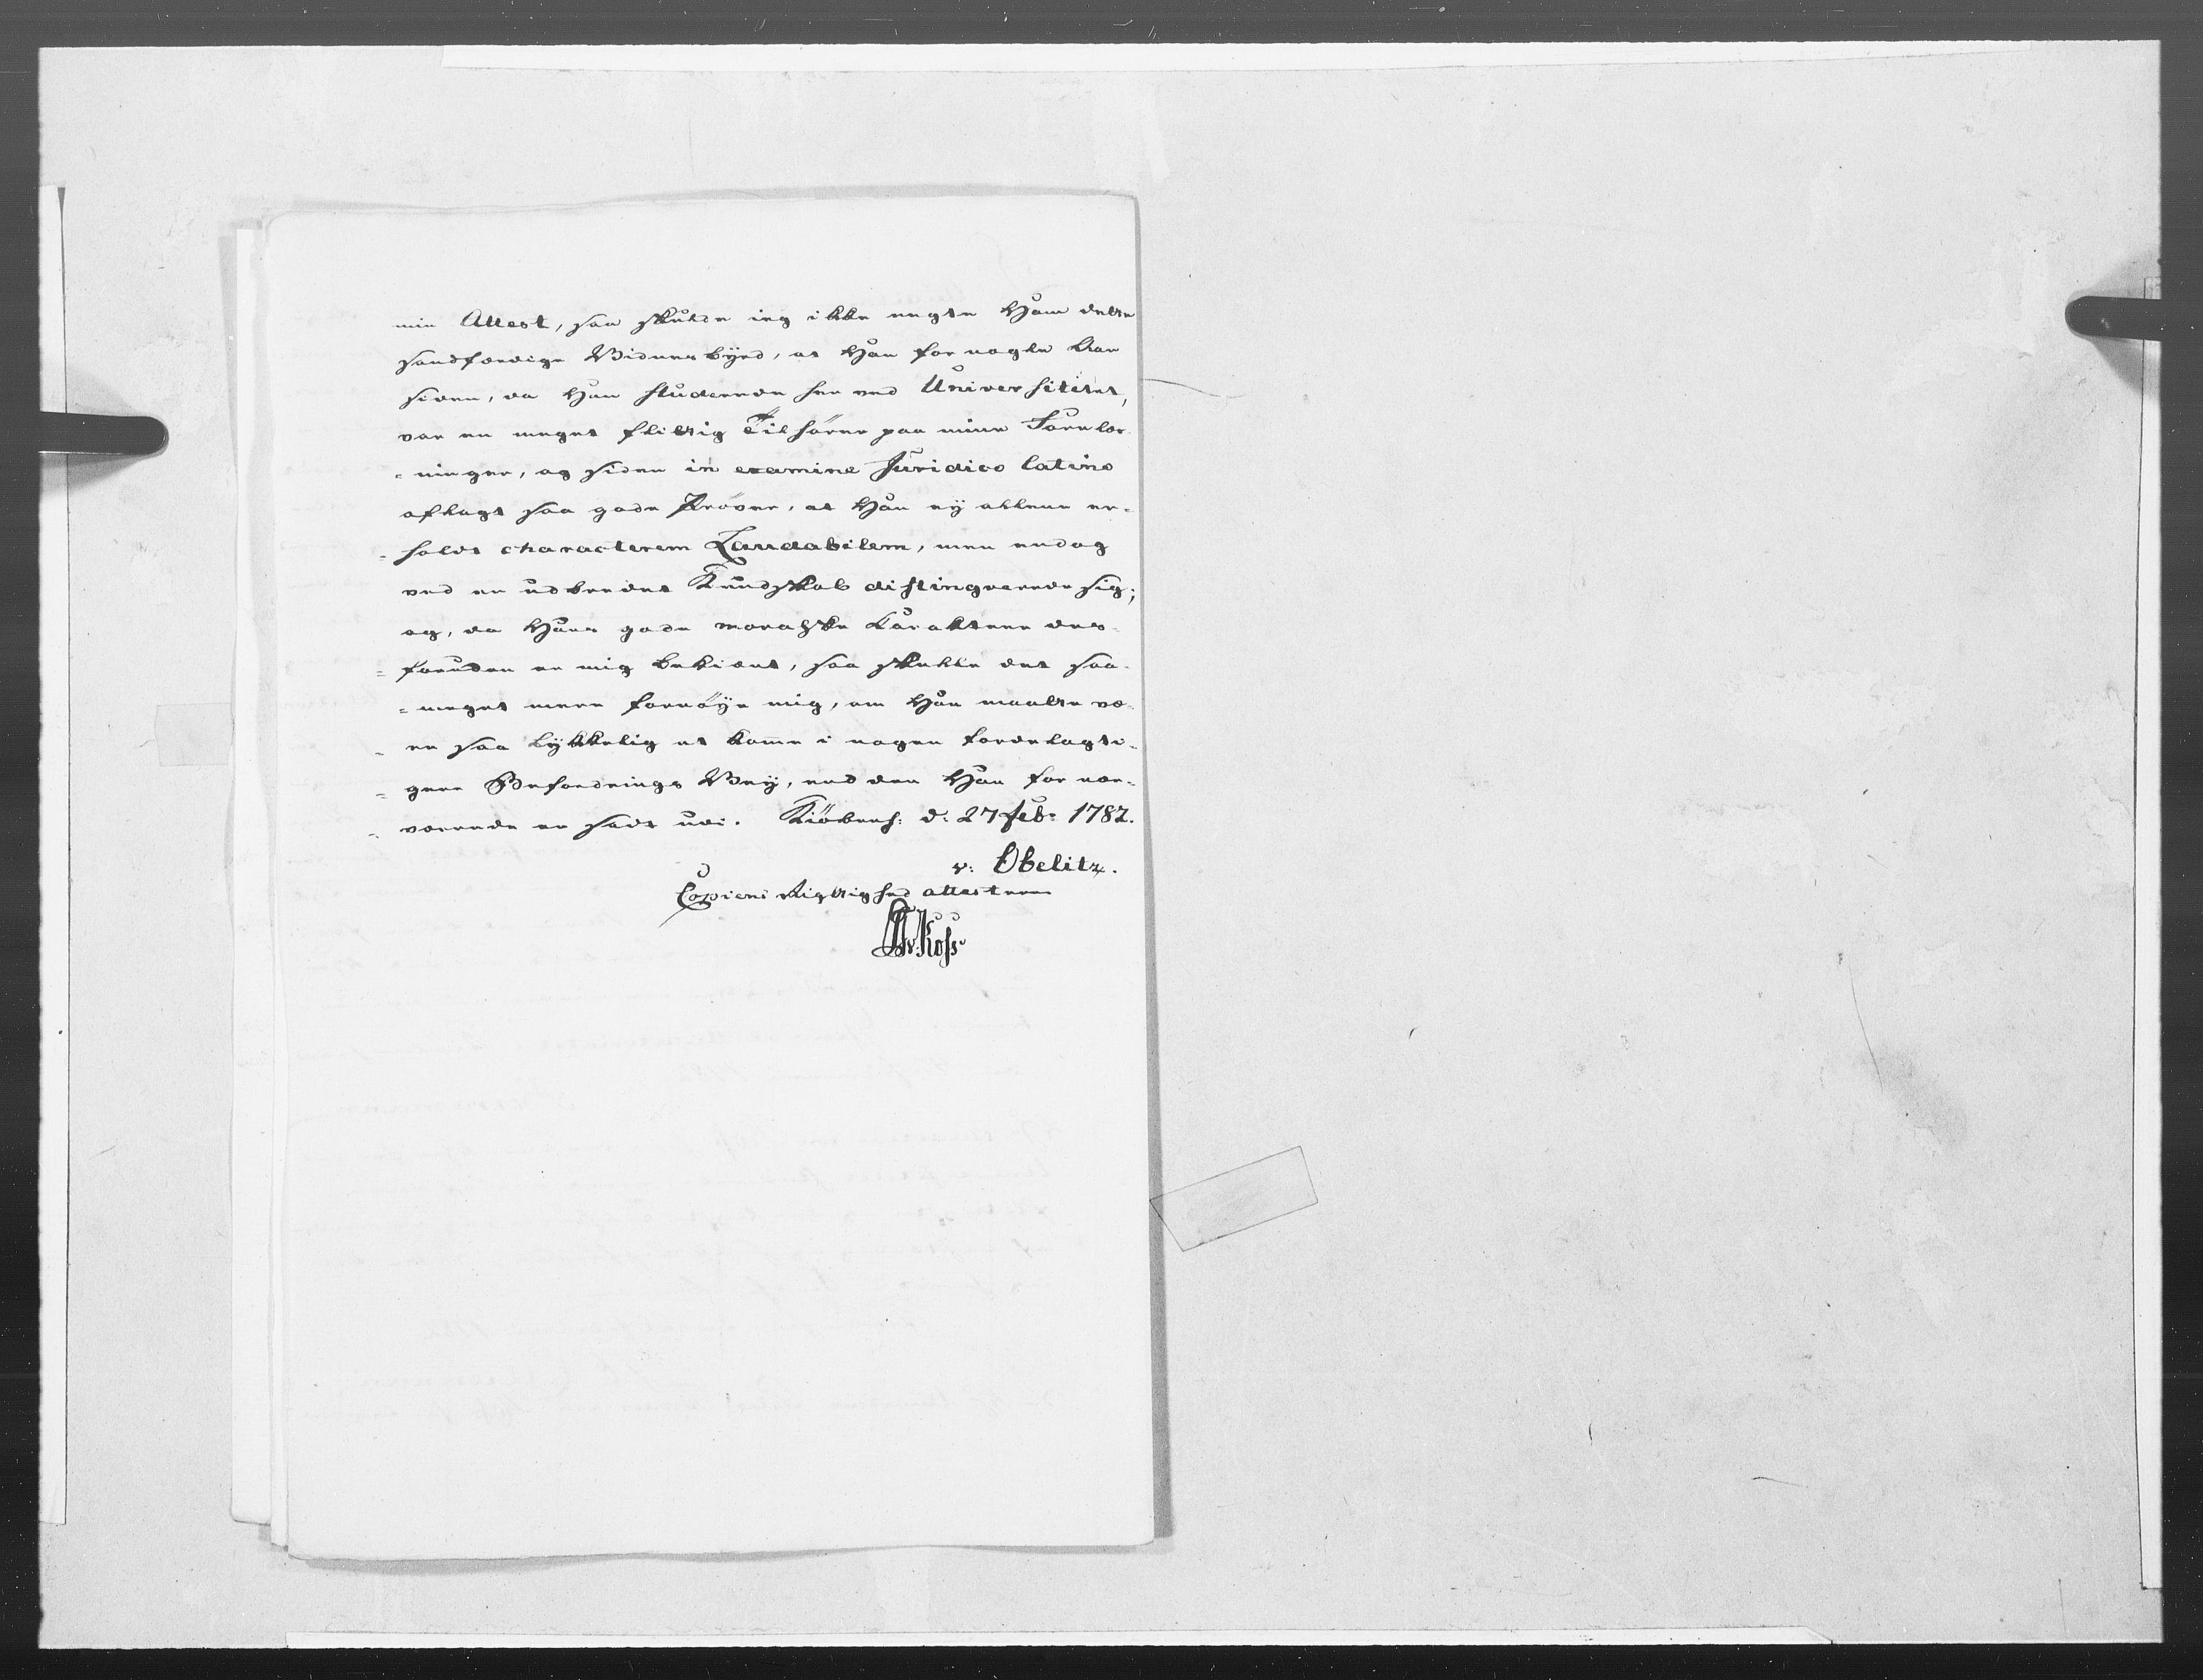 min Attest, saa skulde ieg ikke negte Ham dette
sandfærdige Vidnesbyrd, at Han for nogle Aar
siden, da Han studerede her ved Universitetet,
var en meget flittig Tilhörer paa mine Forelæs-
-ninger, og siden in examine Juridico latino
aflagt saa gode Pröver, at Han ey allene er-
-holdt characterem Laudabilem, men endog
ved en udbredet Kundskab distingverede sig;
og, da Hans gode moralske Karakteer des-
-foruden er mig bekiendt, saa skulde det saa-
-meget mere fornöye mig, om Han maatte væ-
-re saa lykkelig at komme i nogen fordelagti-
-gere Befordrings Vey, end den Han for nær-
-værende er sadt udi. Kiöbenh: d: 27 Feb: 1782.
v: Obelitz.
Copiens Rigtighed attesterer
v: Koss